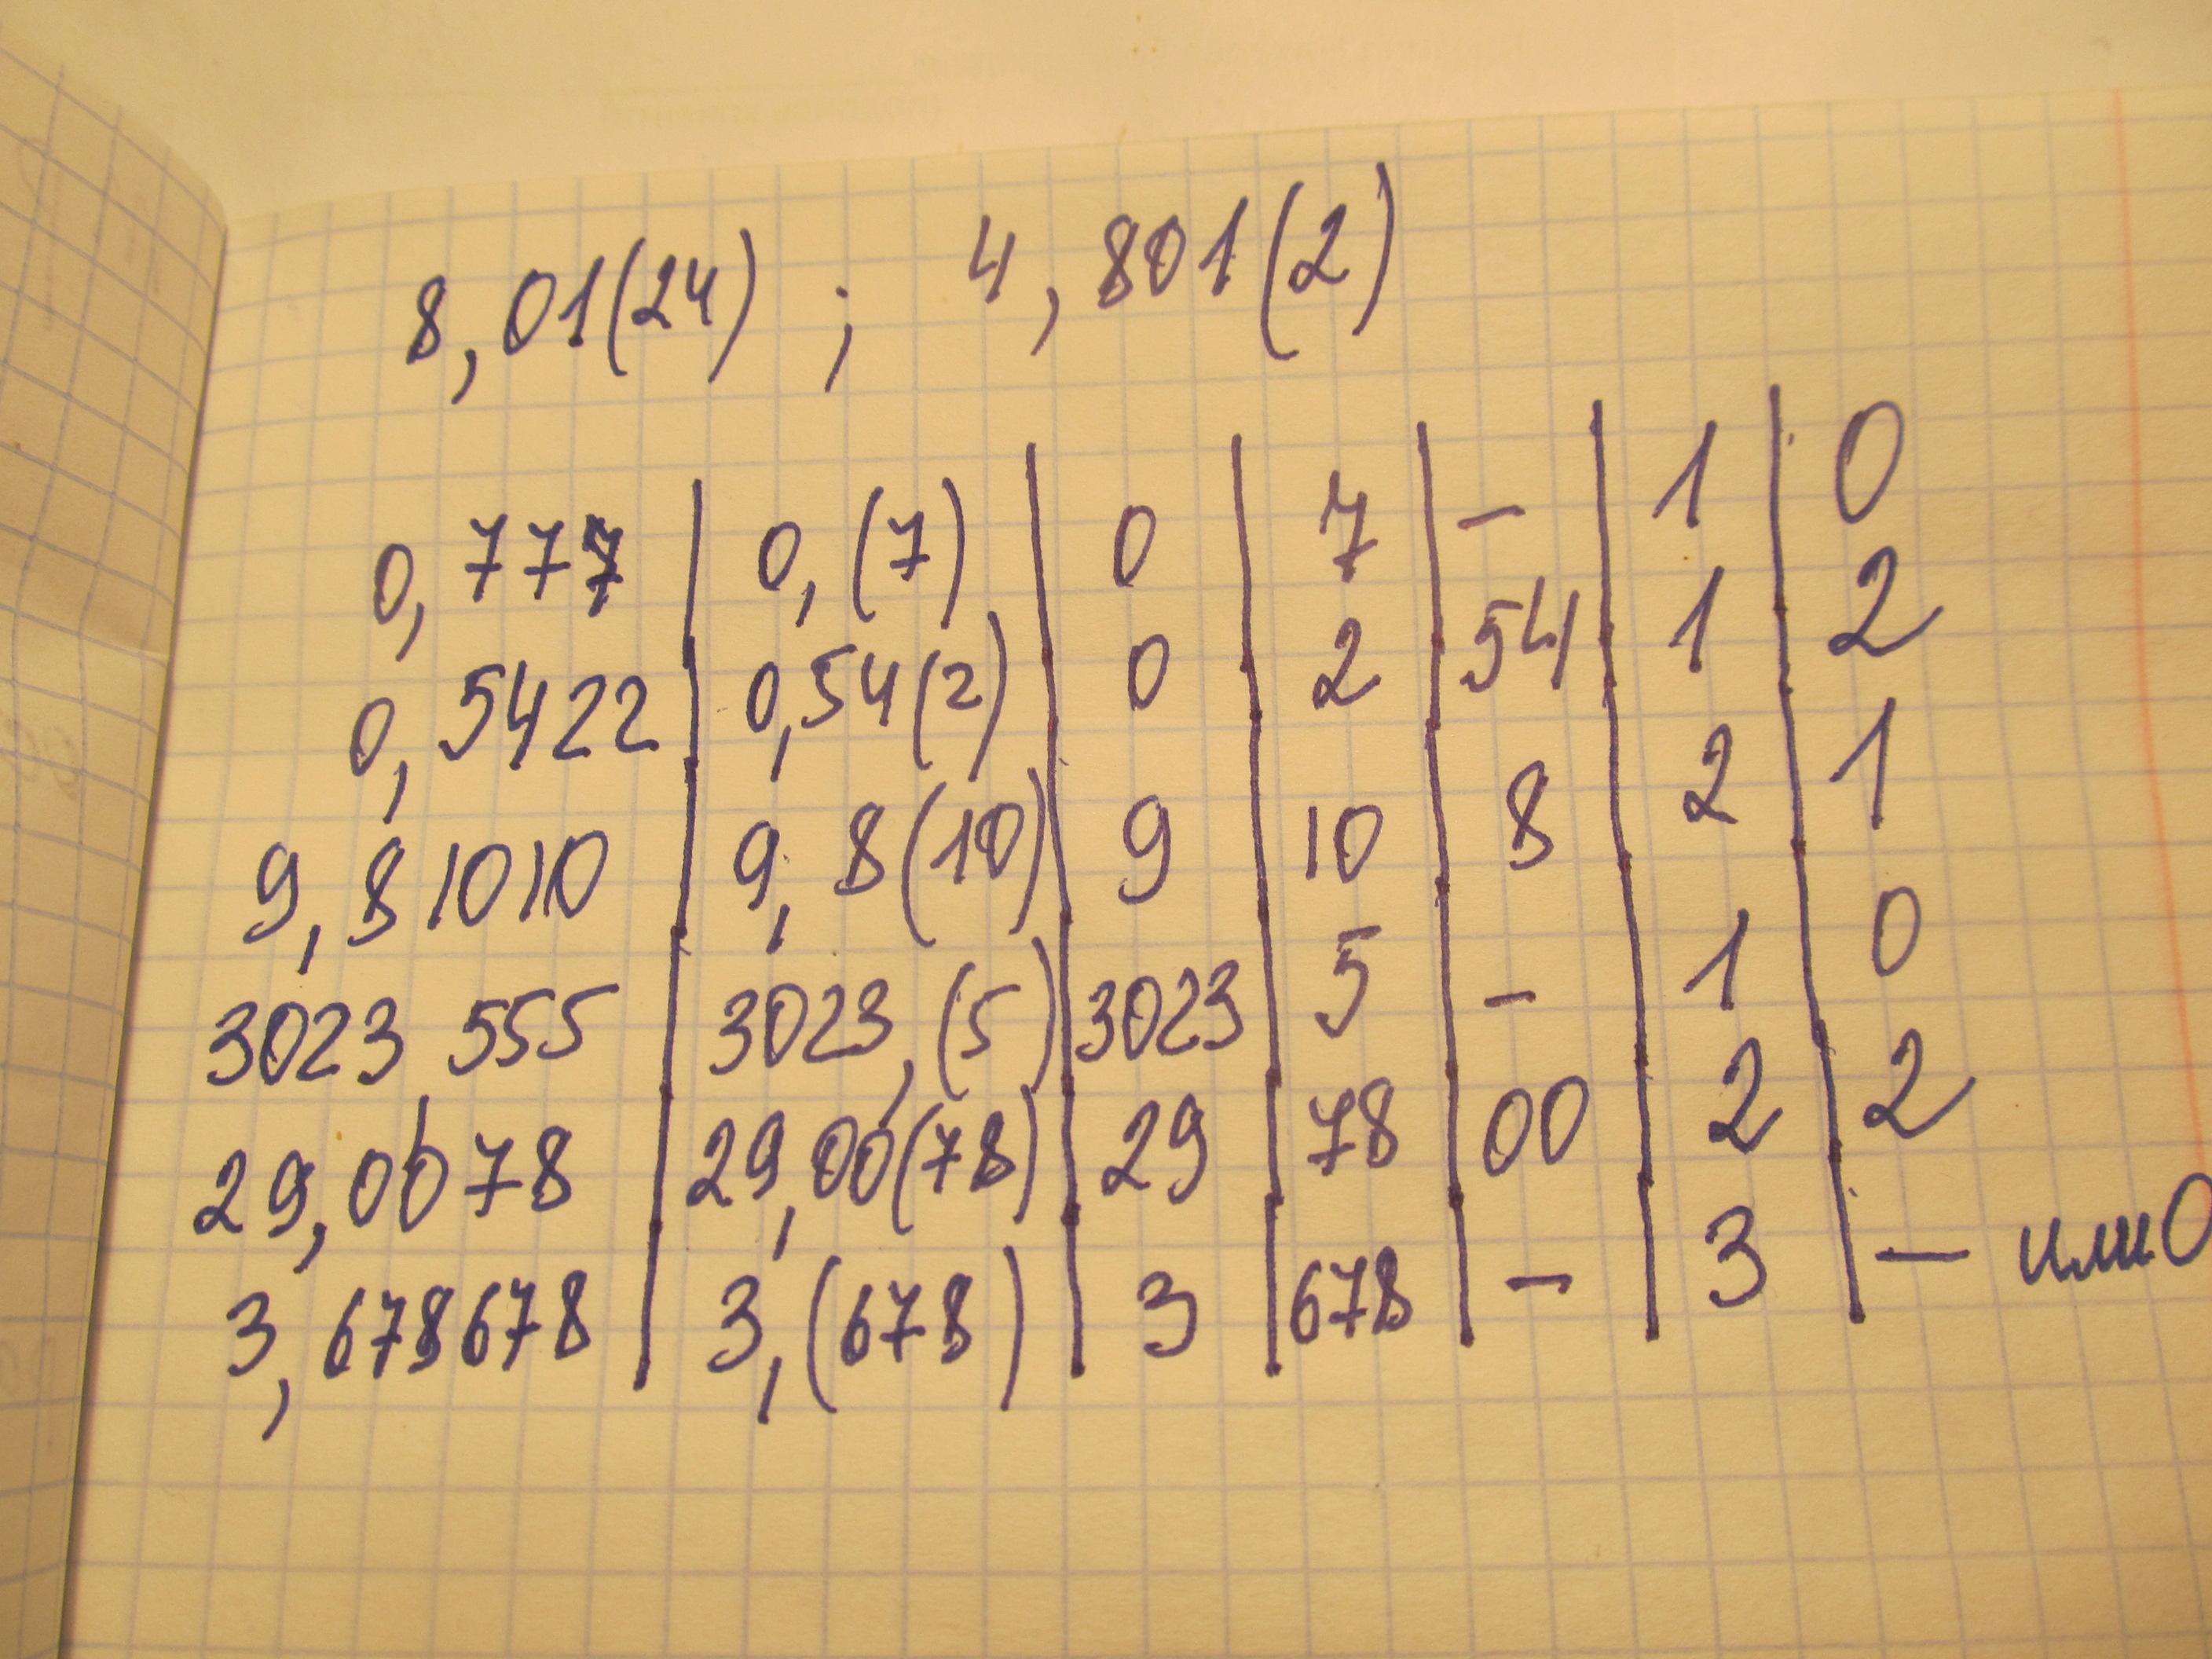 8,01(24) ; 4,801(2)
0,777 | 0,(7) | 0 | 7 | – | 1 | 0
0,5422 | 0,54(2) | 0 | 2 | 54 | 1 | 2
9,81010 | 9,8(10) | 9 | 10 | 8 | 2 | 1
3023,555 | 3023,(5) | 3023 | 5 | – | 1 | 0
29,0078 | 29,00(78) | 29 | 78 | 00 | 2 | 2
3,678678 | 3,(678) | 3 | 678 | – | 3 | – или 0